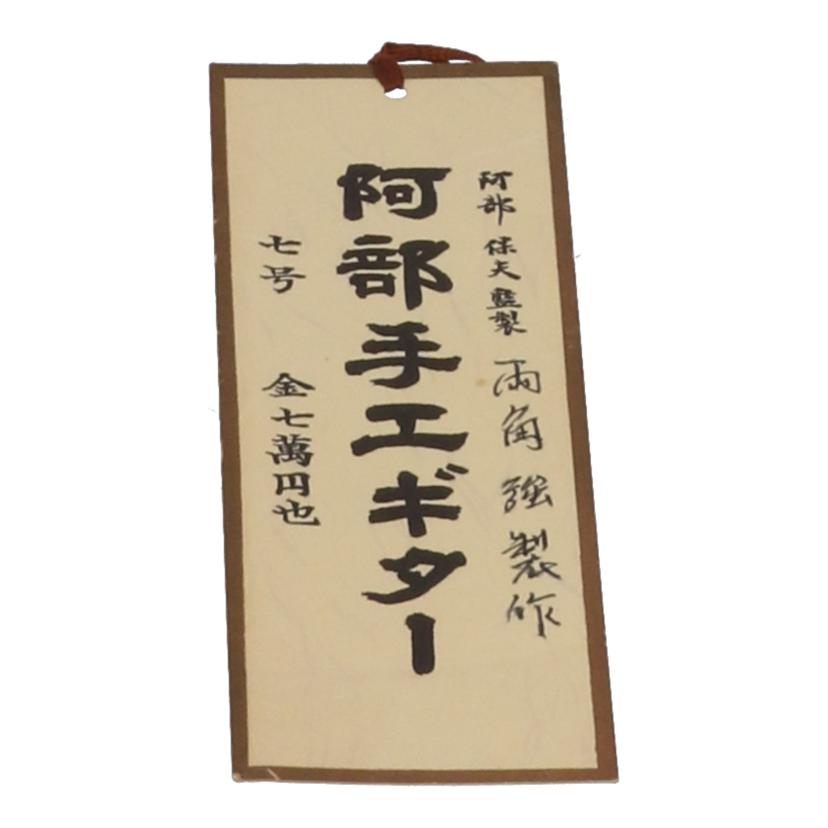 阿部保夫監製 両角強製作
阿部手工ギター
七号 金七萬円也